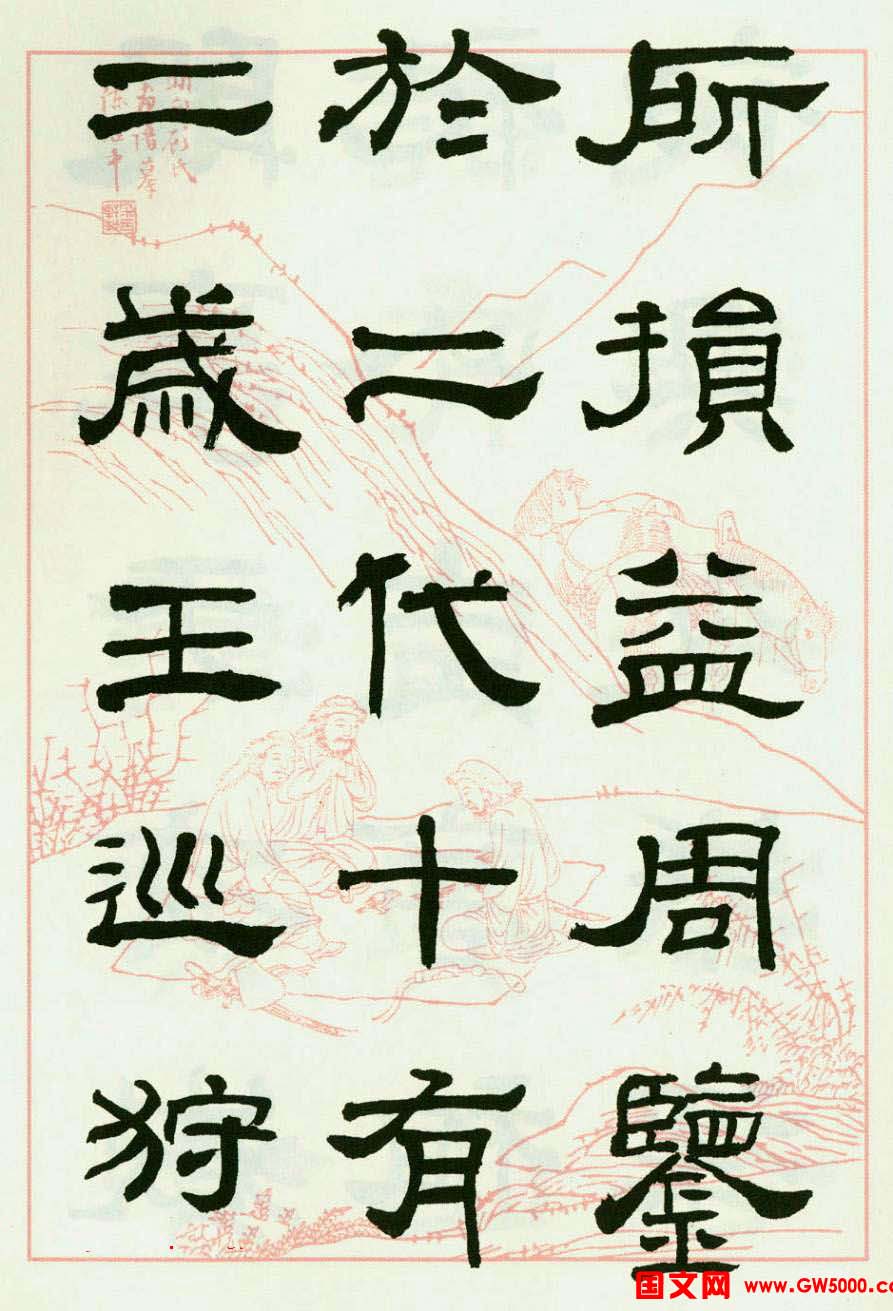 所損益周鑒
於二代十有
二歲王巡狩
国文网 www.GW5000.c